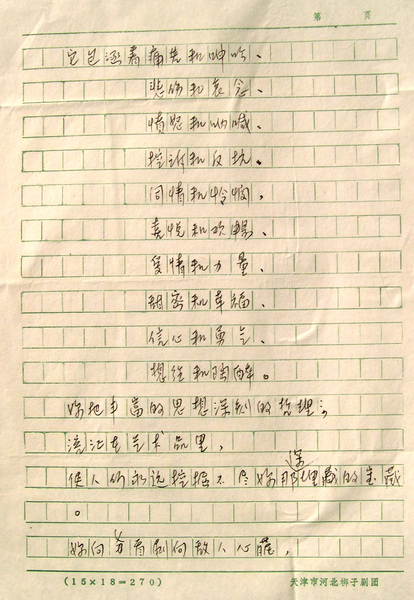 第 页
它包涵着痛苦和呻吟、
悲伤和哀念、
愤怒和呐喊、
控诉和反抗。
同情和怜悯,
喜悦和欢畅、
爱情和力量、
甜密和幸福、
信心和勇气、
想往和陶醉。
你把丰富的思想深刻的哲理;
流注在艺术品里,
使人们永远挖掘不尽你那深埋藏的宝藏
。
你向 看剧向敌人心
(15×18=270)
天津市河北梆子剧团